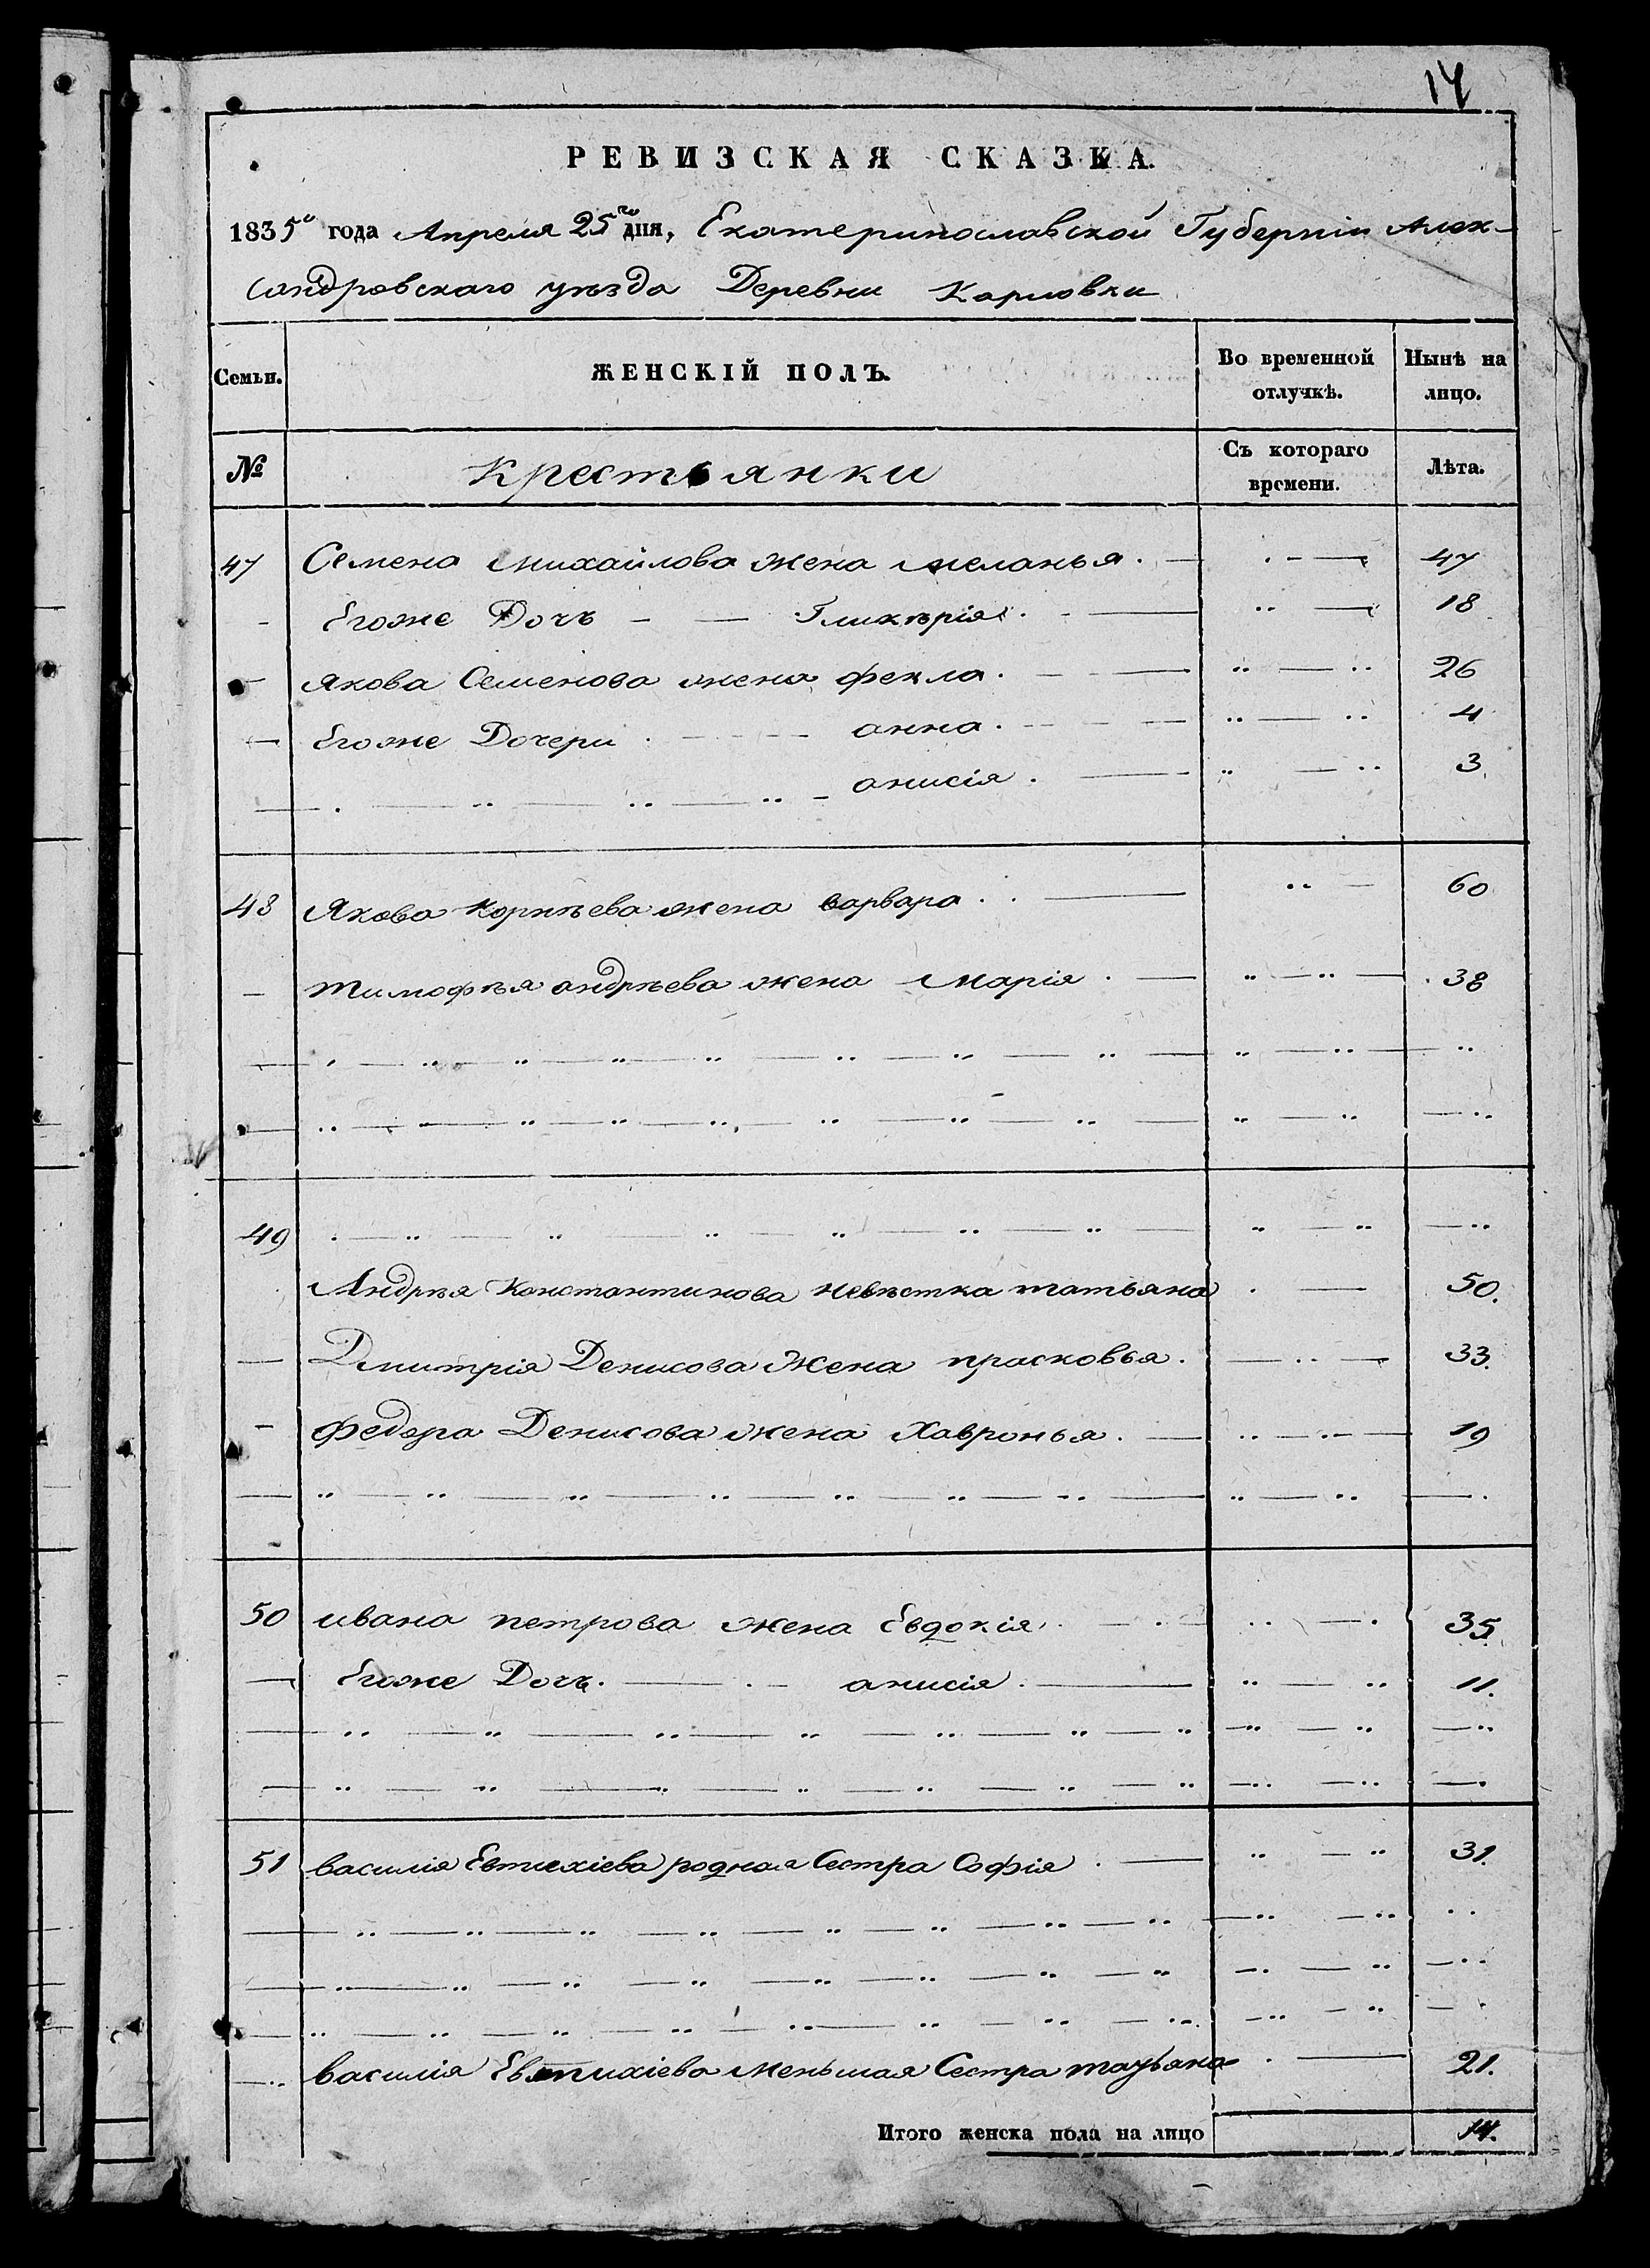 14
РЕВИЗСКАЯ СКАЗКА.
1835го года Апреля 25го дня, Екатеринославской Губерніи Алек-
сандровскаго уѣзда Деревни Карловки
Семьи. ЖЕНСКІЙ ПОЛЪ. Во временной отлучкѣ. Нынѣ на лицо.
№ Крестьянки Съ котораго времени. Лѣта.
47 Семена Михайлова жена меланья. 47
Егоже Дочь Гликѣрія. 18
якова Семенова жена фекла. 26
Егоже Дочери анна. 4
анисія. 3.
48 Якова Корнѣева жена варвара 60
тимофѣя андрѣева жена Марія 38
49
Андрѣя Константинова невѣстка татьяна 50.
Дмитрія Денисова жена прасковья. 33.
федора Денисова жена Хавронья. 19
50 ивана петрова жена Евдокія 35.
Егоже Дочь. анисія. 11.
51 василія Евтихіева родная Сестра Софія 31.
василія Евтихіева меньшая Сестра татьяна 21.
Итого женска пола на лицо 14.